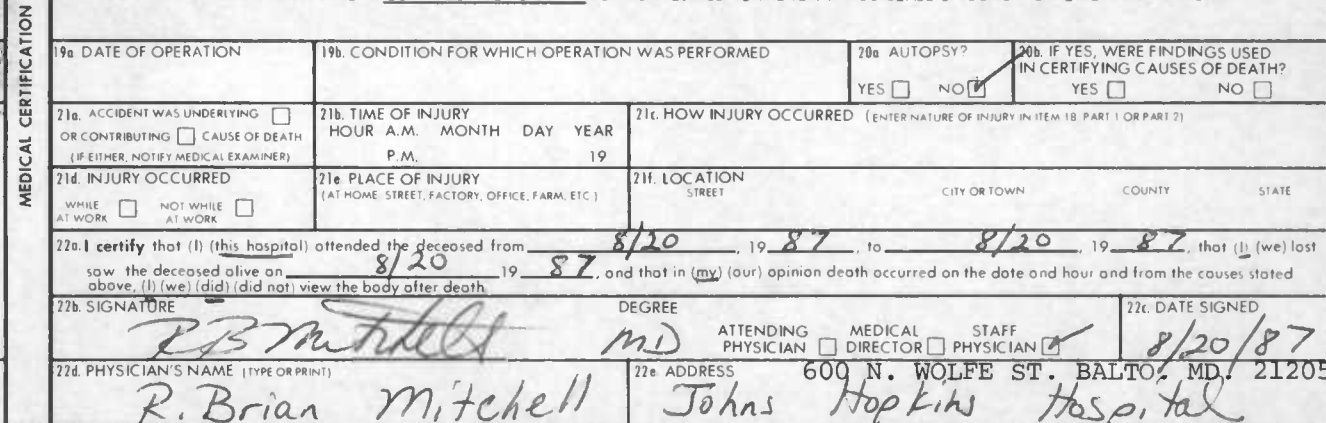 MEDICAL CERTIFICATION
19a DATE OF OPERATION
19b. CONDITION FOR WHICH OPERATION WAS PERFORMED
20a AUTOPSY?
YES NO
20b. IF YES, WERE FINDINGS USED
IN CERTIFYING CAUSES OF DEATH?
YES NO
21a. ACCIDENT WAS UNDERLYING
OR CONTRIBUTING CAUSE OF DEATH
(IF EITHER, NOTIFY MEDICAL EXAMINER)
21b. TIME OF INJURY
HOUR A.M. MONTH DAY YEAR
P.M. 19
21c. HOW INJURY OCCURRED (ENTER NATURE OF INJURY IN ITEM 18 PART 1 OR PART 2)
21d. INJURY OCCURRED
WHILE AT WORK NOT WHILE AT WORK
21e PLACE OF INJURY
(AT HOME STREET, FACTORY, OFFICE, FARM, ETC)
21f. LOCATION
STREET CITY OR TOWN COUNTY STATE
22a. I certify that (I) (this hospital) attended the deceased from 8/20, 19 87, to 8/20, 19 87, that (I) (we) last
saw the deceased alive on 8/20 19 87, and that in (my) (our) opinion death occurred on the date and hour and from the causes stated
above, (I) (we) (did) (did not) view the body after death
22b. SIGNATURE
RB Mitchell
DEGREE
MD
ATTENDING PHYSICIAN MEDICAL DIRECTOR STAFF PHYSICIAN
22c. DATE SIGNED
8/20/87
22d. PHYSICIAN'S NAME (TYPE OR PRINT)
R. Brian Mitchell
22e ADDRESS 600 N. WOLFE ST. BALTO. MD. 21205
Johns Hopkins Hospital